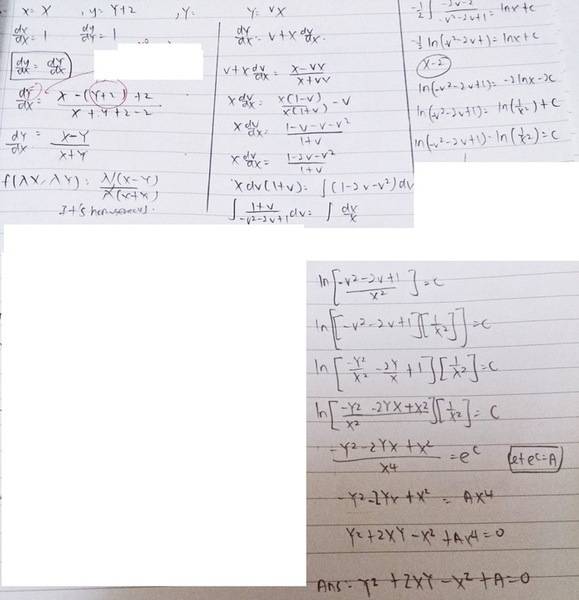 x = X , y = Y+2 , Y =
dx/dX = 1 dy/dY = 1
dy/dx = dY/dX
dY/dX = X - (Y+2) + 2 / X + Y + 2 - 2
dY/dX = X-Y / X+Y
f(λX, λY) = λ(X-Y) / λ(X+Y)
It's homogeneous.
Y = VX
dY/dX = V + X dv/dX
V + X dv/dX = X - VX / X + VX
X dv/dX = X(1-V) / X(1+V) - V
X dv/dX = 1-V-V-V² / 1+V
X dv/dX = 1-2V-V² / 1+V
X dv(1+V) = ∫(1-2V-V²)dv
∫ 1+V / -V²-2V+1 dv = ∫ dx/X
-1/2 ∫ -2V-2 / -V²-2V+1 = ln X + C
-1/2 ln(-V²-2V+1) = ln X + C
X-2
ln(-V²-2V+1) = -2lnX - 2C
ln(-V²-2V+1) = ln(1/X²) + C
ln(-V²-2V+1) - ln(1/X²) = C
ln[-V²-2V+1 / X²] = C
ln[[-V²-2V+1][1/X²]] = C
ln[-Y²/X² - 2Y/X + 1][1/X²] = C
ln[-Y²-2YX+X² / X²][1/X²] = C
-Y²-2YX+X² / X4 = e^C let e^C = A
-Y²-2YX+X² = AX4
Y²+2XY-X²+AX4=0
Ans: Y²+2XY-X²+A=0